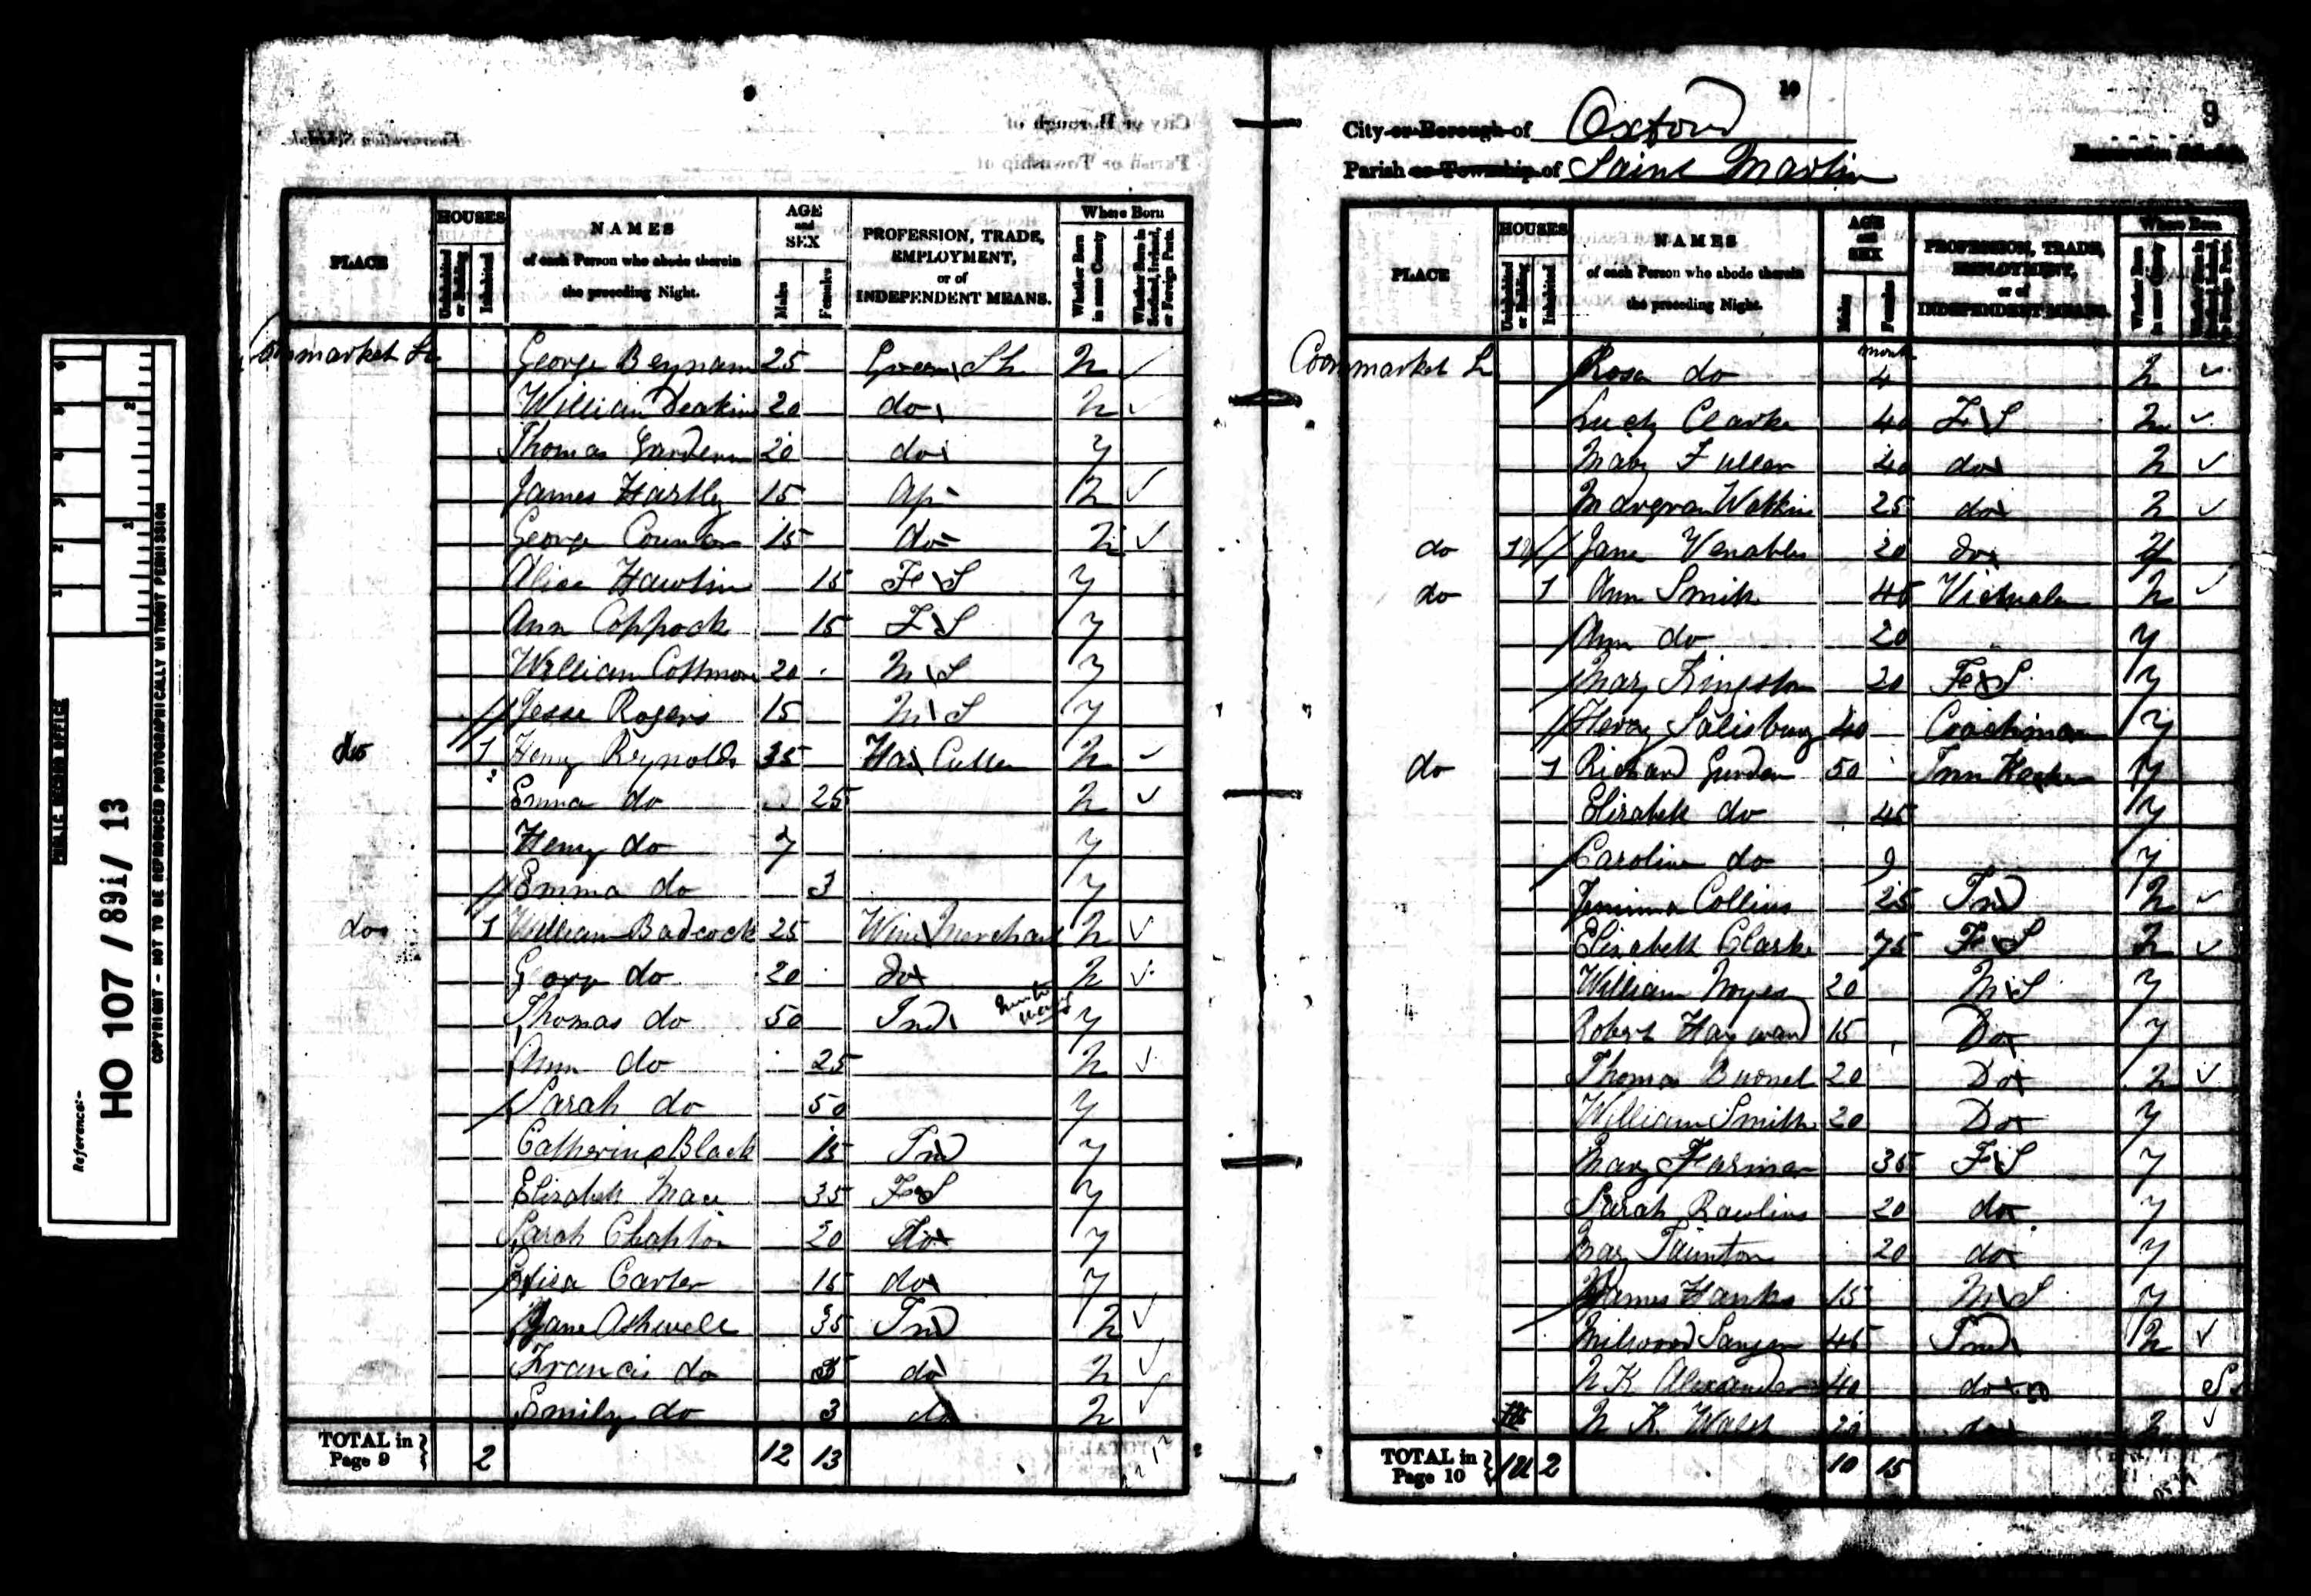 Reference:-
HO 107 / 891 / 13
PUBLIC RECORD OFFICE
COPYRIGHT - NOT TO BE REPRODUCED PHOTOGRAPHICALLY WITHOUT PERMISSION
9
PLACE
HOUSES
Uninhabited or Building
Inhabited
NAMES of each Person who abode therein the preceding Night.
AGE and SEX
Males
Females
PROFESSION, TRADE, EMPLOYMENT, or of INDEPENDENT MEANS.
Where Born
Whether Born in same County
Whether Born in Scotland, Ireland, or Foreign Parts.
Cornmarket St George 25 N
William Deakin 20 do N
Thomas Gardener 20 do Y
James Hartley 15 Ap N
George 15 do N
Alice 15 Fe S Y
Ann Coppock 15 F S Y
William 20 M S Y
Jesse Rogers 15 M S Y
do 1 Henry Reynolds 35 Hair Cutter N
Emma do 25 N
Henry do 7 Y
Emma do 3 Y
do 1 William Badcock 25 Wine Merchant N
George do 20 do N
Thomas do 50 Ind Y
Ann do 25 N
Sarah do 50 Y
Catherine Black 15 Ind Y
Elizabeth 35 F S Y
Sarah 20 do Y
Eliza Carter 15 do Y
Jane Ashwell 35 Ind N
Francis do 5 do N
Emily do 3 do N
TOTAL in Page 9 2 12 13
10
9
City or Borough of Oxford
Enumeration Schedule.
Parish or Township of Saint Martin
PLACE
HOUSES
Uninhabited or Building
Inhabited
NAMES of each Person who abode therein the preceding Night.
AGE and SEX
Males
Females
PROFESSION, TRADE, EMPLOYMENT, or of INDEPENDENT MEANS.
Where Born
Cornmarket St Rosa do 4 months N
Lucy Clarke 40 F S N
Mary Fuller 40 do N
Watkins 25 do N
do 1U Jane Venables 20 do Y
do 1 Ann Smith 45 Victualer N
Ann do 20 Y
Mary Kingston 20 Fe S Y
Henry Salisbury 40 Coachman Y
do 1 Richard Gurden 50 Inn Keeper Y
Elizabeth do 45 Y
Caroline do 9 Y
Jemima Collins 25 Ind N
Elizabeth Clarke 75 F S N
William Noyes 20 M S Y
Robert Hayward 15 Do Y
Thomas 20 Do N
William Smith 20 Do Y
Mary Farmer 35 F S Y
Sarah Rawlins 20 do Y
Mary Taunton 20 do Y
James Hanks 15 M S Y
45 Ind N
N K Alexander 40 do S
N K Walsh 20 do N
TOTAL in Page 10 1U 2 10 15